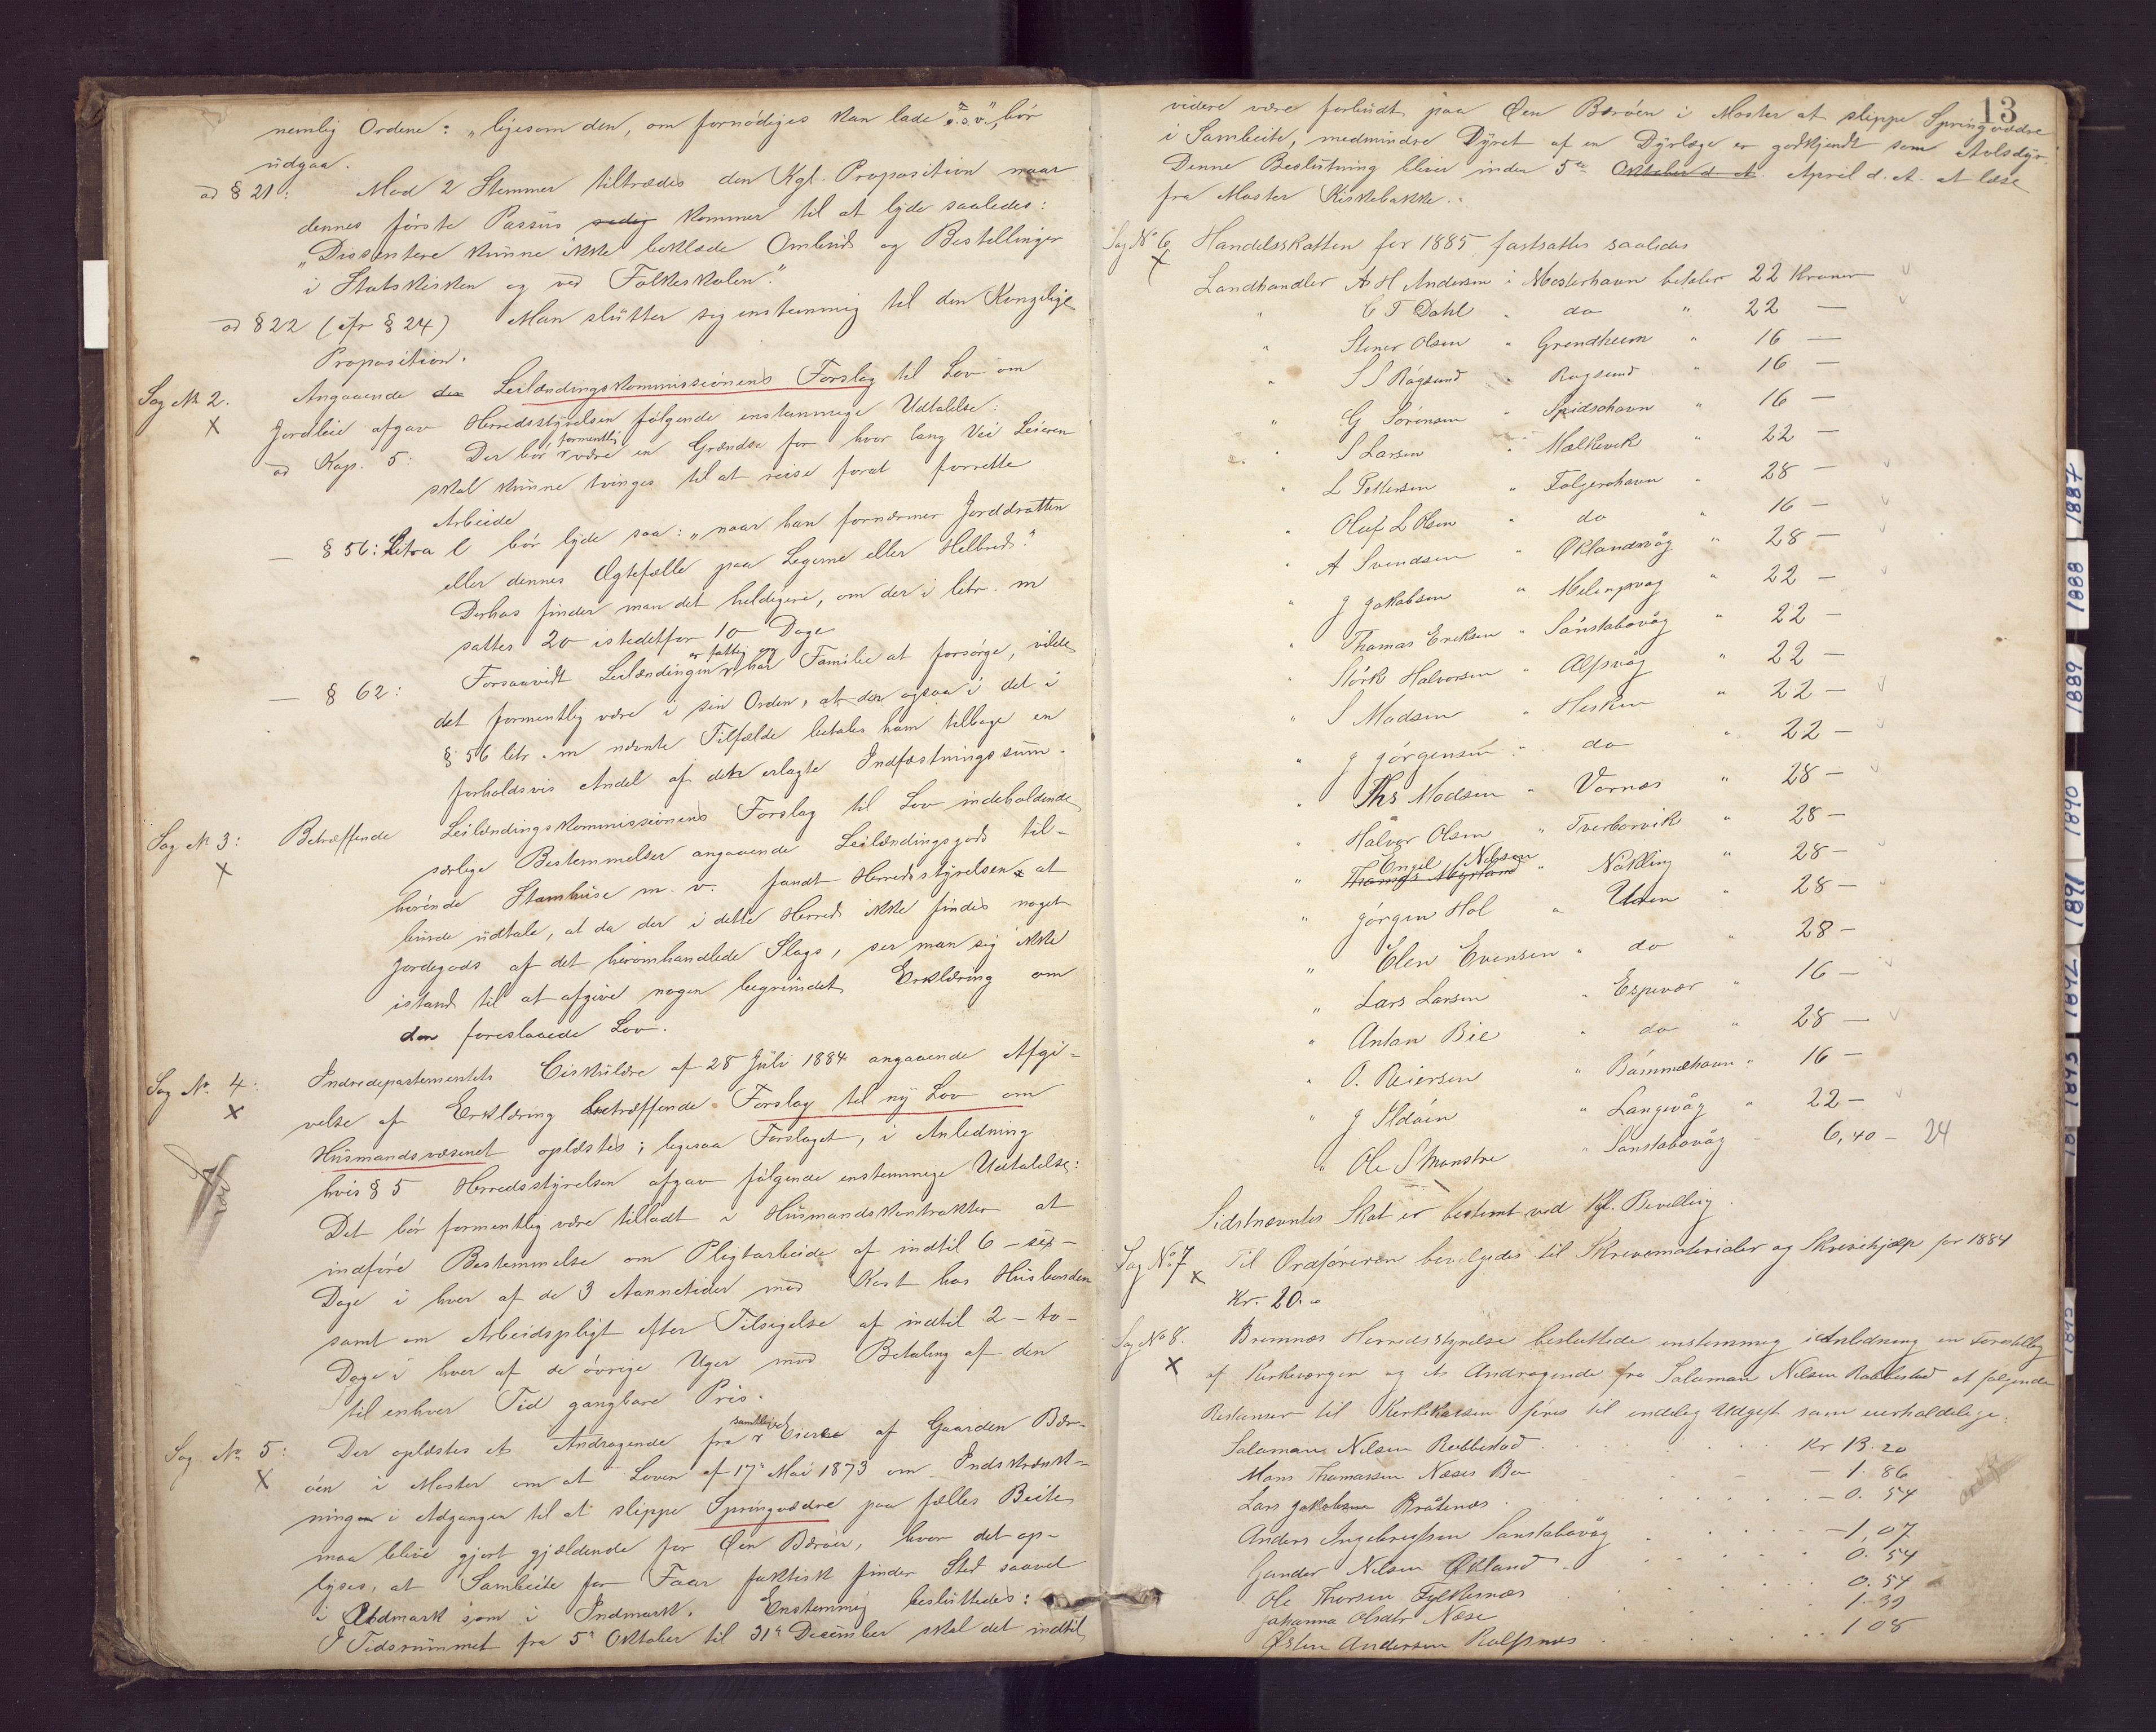 nemlig Ordene: „ligesom den, om fornödiges kan lade o.s.v.", bör
udgaa.
ad § 21: Mod 2 Stemmer tiltrædes den Kgl. Proposition naar
dennes förste Passus kommer til at lyde saaledes:
„Dissentere kunne ikke beklæde Ombud og Bestillinger
i Statskirken og ved Folkeskolen."
ad § 22 (cfr § 24) Man slutter sig enstemmig til den Kongelige
Proposition.
Sag No 2. Angaaende den Leilændingskommissionens Forslag til Lov om
X Jordleie afgav Herredsstyrelsen fölgende enstemmige Udtalelse:
ad Kap. 5: Der bör formentlig være en Grændse for hvor lang Vei Leieren
skal kunne tvinges til at reise forat forrette
Arbeide
— § 56: Litra l bör lyde saa: „naar han fornærmer Jorddrotten
eller dennes Ægtefælle paa Legeme eller Helbred."
Derhos finder man det heldigere, om der i litr. m
sattes 20 istedetfor 10 Dage
— § 62: Forsaavidt Leilændingen er fattig og har Familie at forsörge, vilde
det formentlig være i sin Orden, at der ogsaa i det i
§ 56 litr. m nævnte Tilfælde betales ham tilbage en
forholdsvis Andel af den erlagte Indfæstningssum.
Sag No 3: Betræffende Leilændingskommissionens Forslag til Lov indeholdende
X særlige Bestemmelser angaaende Leilændingsgods til-
hörende Stamhuse m. v. fandt Herredsstyrelsen at
burde udtale, at da der i dette Herred ikke findes noget
Jordegods af det heromhandlede Slags, ser man sig ikke
istand til at afgive nogen begrundet Erklæring om
den foreslaaede Lov.
Sag No. 4: Indredepartementets Cirkulære af 28 Juli 1884 angaaende Afgi-
X velse af Erklæring betræffende Forslag til ny Lov om
Husmandsvæsenet oplæstes; ligesaa Forslaget, i Anledning
hvis § 5 Herredsstyrelsen afgav fölgende enstemmige Udtalelse:
Det bör formentlig være tilladt i Husmandskontrakter at
indföre Bestemmelse om Pligtarbeide af indtil 6 – sex –
Dage i hver af de 3 Aannetider med Kost hos Husbonden
samt om Arbeidspligt efter Tilsigelse af indtil 2 – to –
Dage i hver af de övrige Uger mod Betaling af den
til enhver Tid gangbare Pris.
Sag No 5: Der oplæstes et Andragende fra samtlige Eiere af Gaarden Bær-
X öen i Moster om at Loven af 17de Mai 1873 om Indskrænk-
ningen i Adgangen til at slippe Springvædre paa fælles Beite
maa blive gjort gjældende for Öen Bæröen, hvor det op-
lyses, at Sambeite for Faar faktisk finder Sted saavel
i Udmark som i Indmark. Enstemmig besluttedes:
I Tidsrummet fra 5te Oktober til 31te December skal det indtil
13
videre være forbudt paa Öen Bæröen i Moster at slippe Springvædre
i Sambeite, medmindre Dyret af en Dyrlæge er godkjendt som Avlsdyr.
Denne Beslutning bliver inden 5te Oktober d. A. April d. A. at læse
fra Moster Kirkebakke.
Sag No 6 Handelsskatten for 1885 fastsattes saaledes
X
Landhandler A H Andersen i Mosterhavn betaler 22 Kroner
" C T Dahl " do " 22 —
" Stener Olsen " Grondheim " 16 —
" S S Rögsund " Rogsund " 16 —
" G Sörensen " Spidsohavn " 16 —
" S Larsen " Mælkevik " 22 —
" L Pettersen " Folgerohavn " 28 —
" Oluf L Olsen " do " 16 —
" A Svendsen " Øklandsvåg " 28 —
" J Jakobsen " Melingsvag " 22 —
" Thomas Eriksen " Sönstabövåg " 22 —
" Störk Halvorsen " Alfsvåg " 22 —
" S Madsen " Hiskin " 22 —
" J Jörgensen " do " 22 —
" Ths Madsen " Vornæs " 28 —
" Halvor Olsen " Tverborvik " 28 —
" Engel Nilsen " Nökling " 28 —
" Jörgen Hol " Uden " 28 —
" Elen Evensen " do " 28 —
" Lars Larsen " Espevær " 16 —
" Antan Bie " do " 28 —
" O. Reiersen " Bömmelhavn " 16 —
" J Ildöen " Langevåg " 22 —
" Ole S Monstre " Sönstabövåg – 6,40 – 24
Sidstnævntes Skat er bestemt ved Kgl. Bevilling.
Sag No 7 Til Ordföreren bevilgedes til Skrivematerialer og Skrivehjælp for 1884
X Kr. 20.
Sag No 8. Bremnæs Herredsstyrelse besluttede enstemmig i Anledning en Forestilling
X af Kirkeværgen og et Andragende fra Salamon Nilsen Rabbestad at fölgende
Restancer til Kirkekassen föres til endelig Udgift som uerholdelige:
Salamon Nilsen Rabbestad Kr 13. 20
Mons Thomassen Næses Bo — 1. 86
Lars Jakobsen Bråtenæs — 0. 54
Anders Ingebregtsen Sönstabövåg — 1,07
Gunder Nilsen Økland 0. 54
Ole Thorsen Fylkesnæs 0. 54
Johanna Olsdtr Næse 1. 39
Østen Andersen Rolfsnæs 1 08